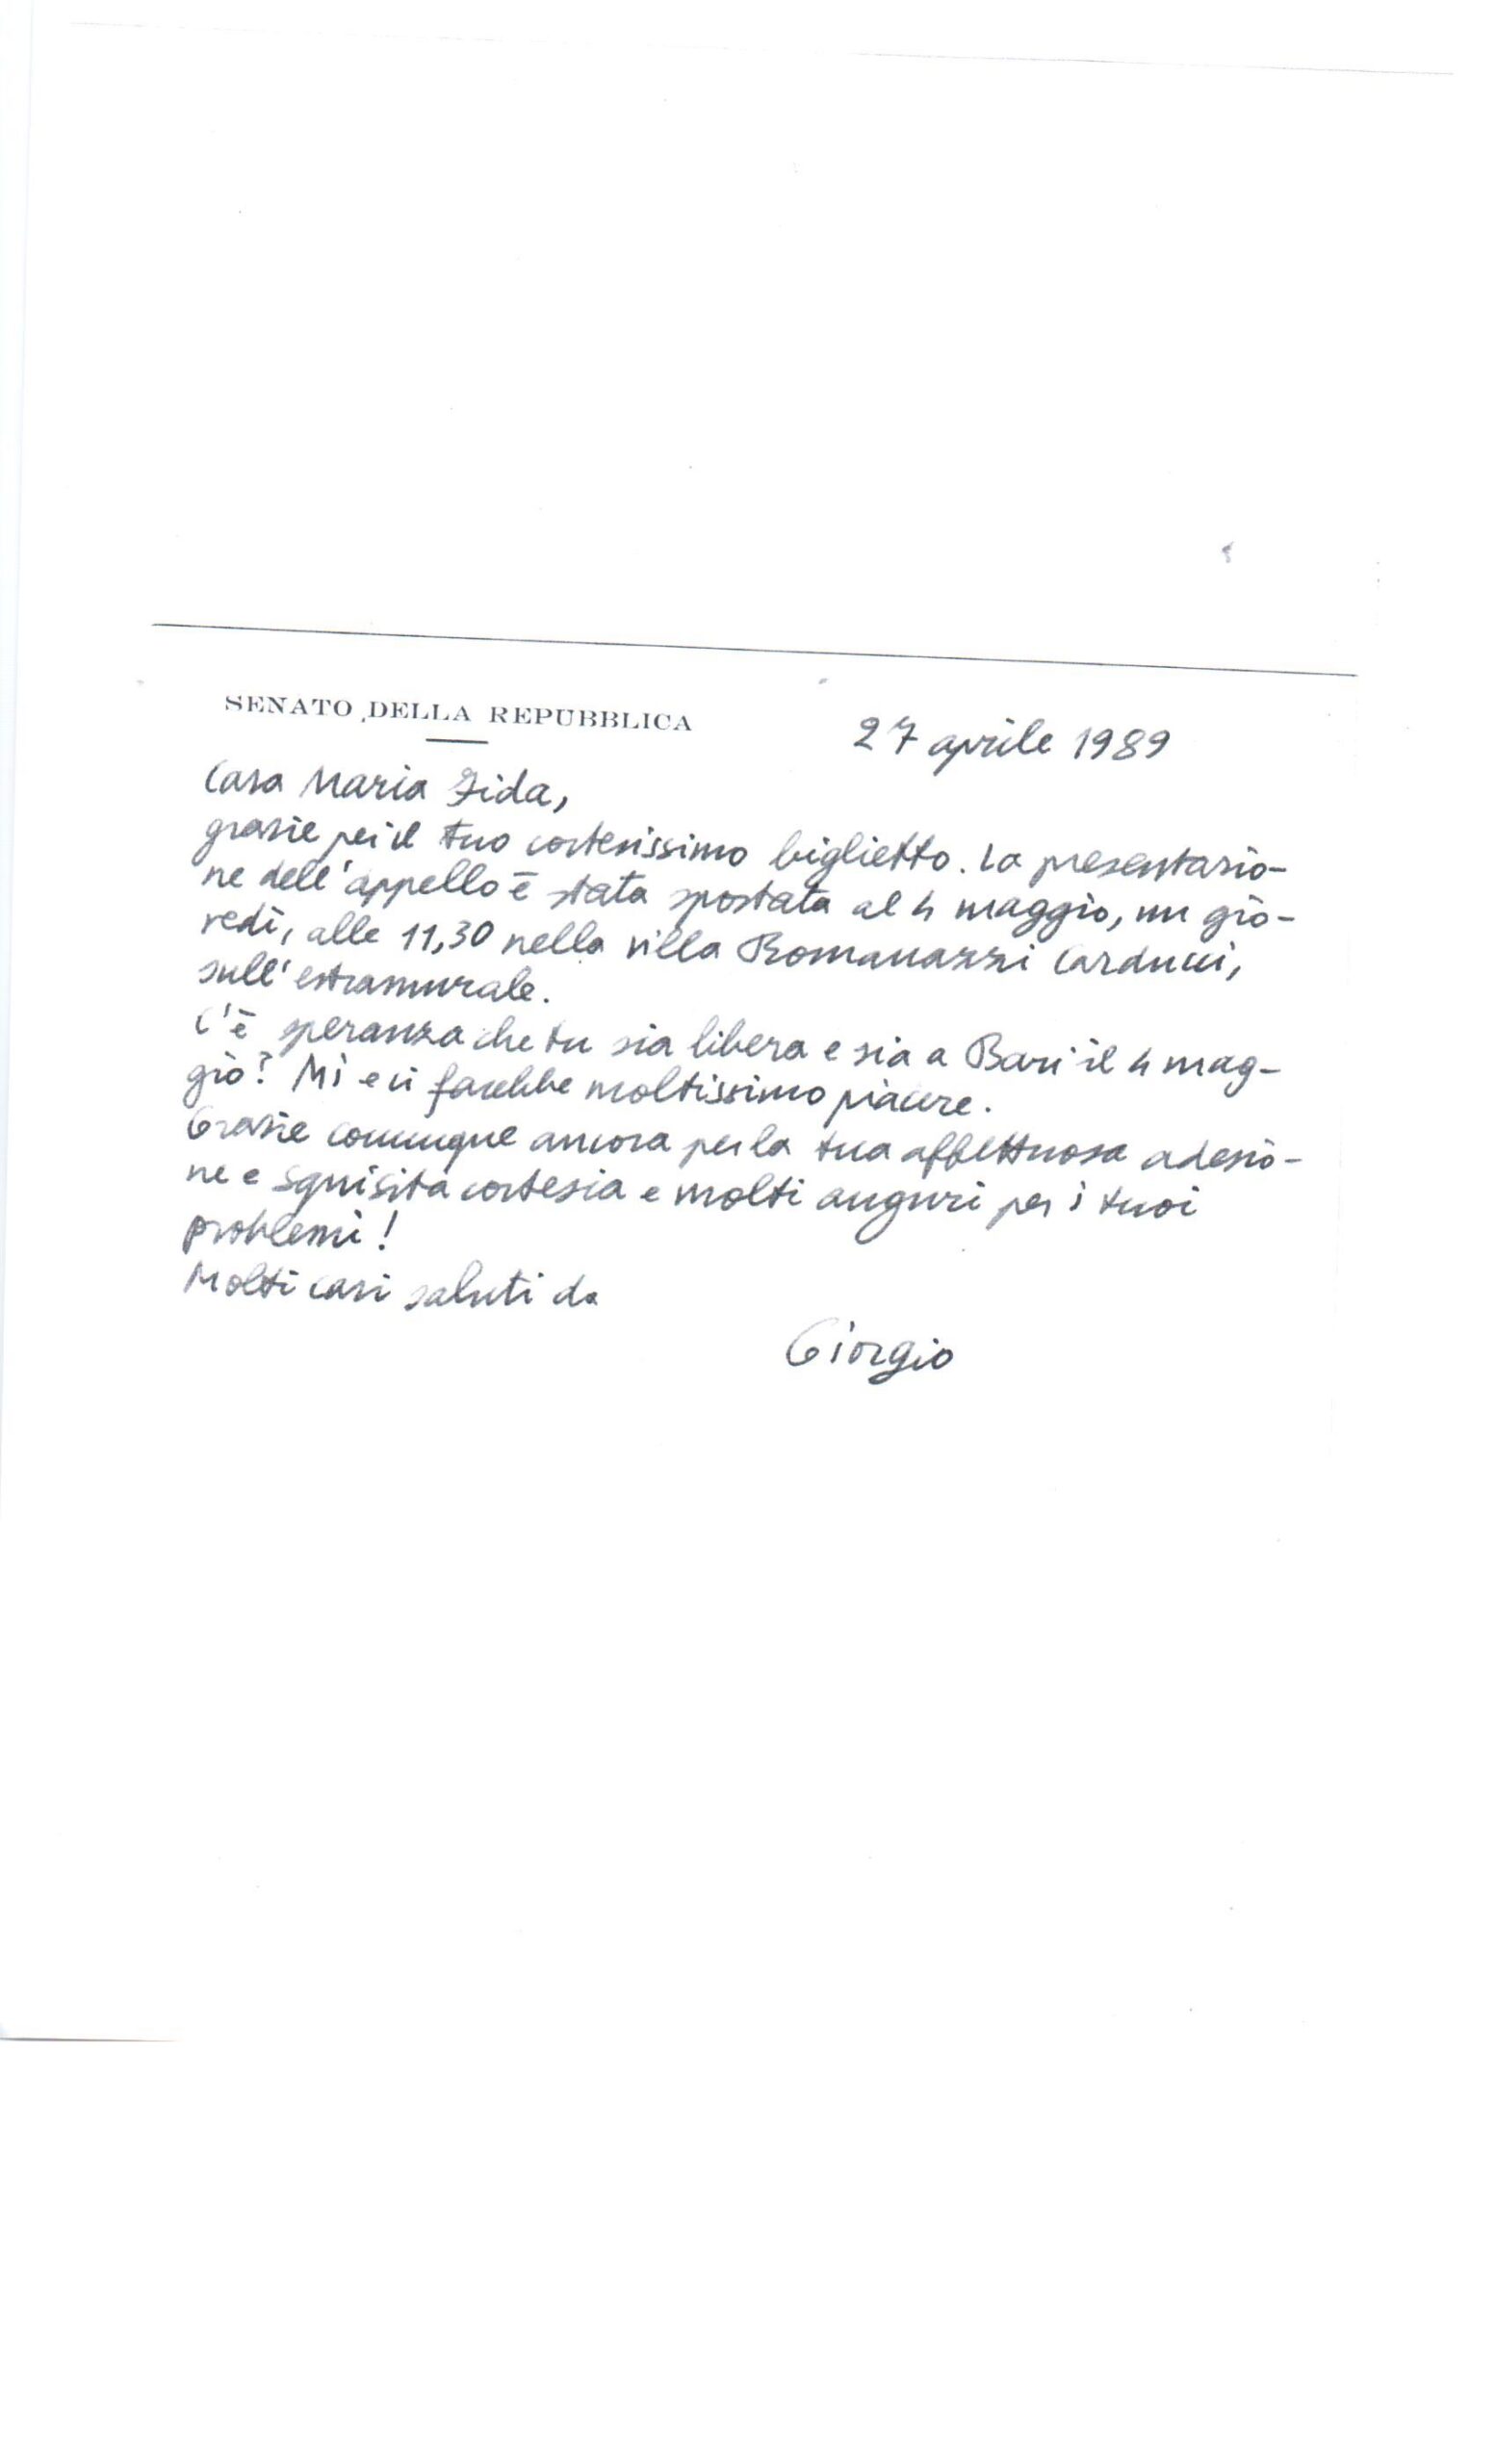 SENATO DELLA REPUBBLICA
27 aprile 1989
Cara Maria Fida,
grazie per il tuo cortesissimo biglietto. La presentazio-
ne dell'appello è stata spostata al 4 maggio, un gio-
vedì, alle 11,30 nella villa Romanazzi Carducci,
sull'estramurale.
C'è speranza che tu sia libera e sia a Bari il 4 mag-
gio? Mi e ci farebbe moltissimo piacere.
Grazie comunque ancora per la tua affettuosa adesio-
ne e squisita cortesia e molti auguri per i tuoi
problemi!
Molti cari saluti da
Giorgio